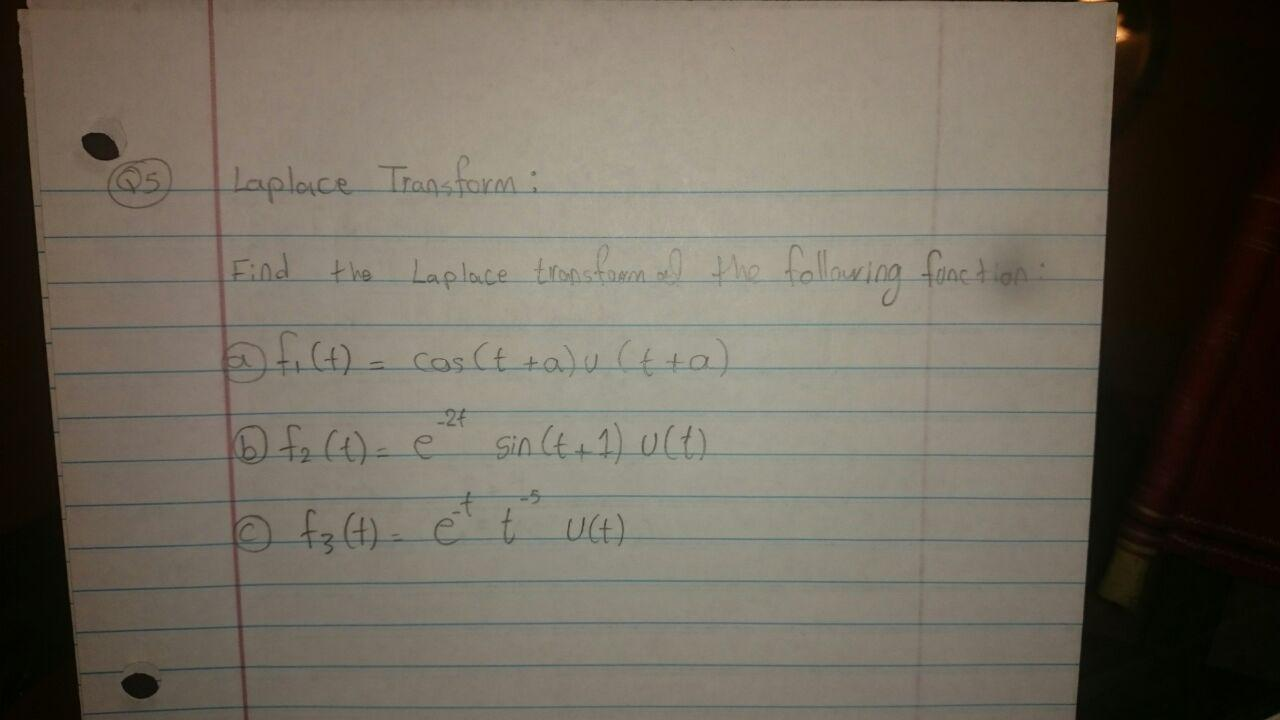 Q5 Laplace Transform:
Find the Laplace transform of the following function:
a) f₁(t) = cos(t+a)u(t+a)
b) f₂(t) = e⁻²ᵗ sin(t+1) u(t)
c) f₃(t) = e⁻ᵗ t⁻⁵ u(t)